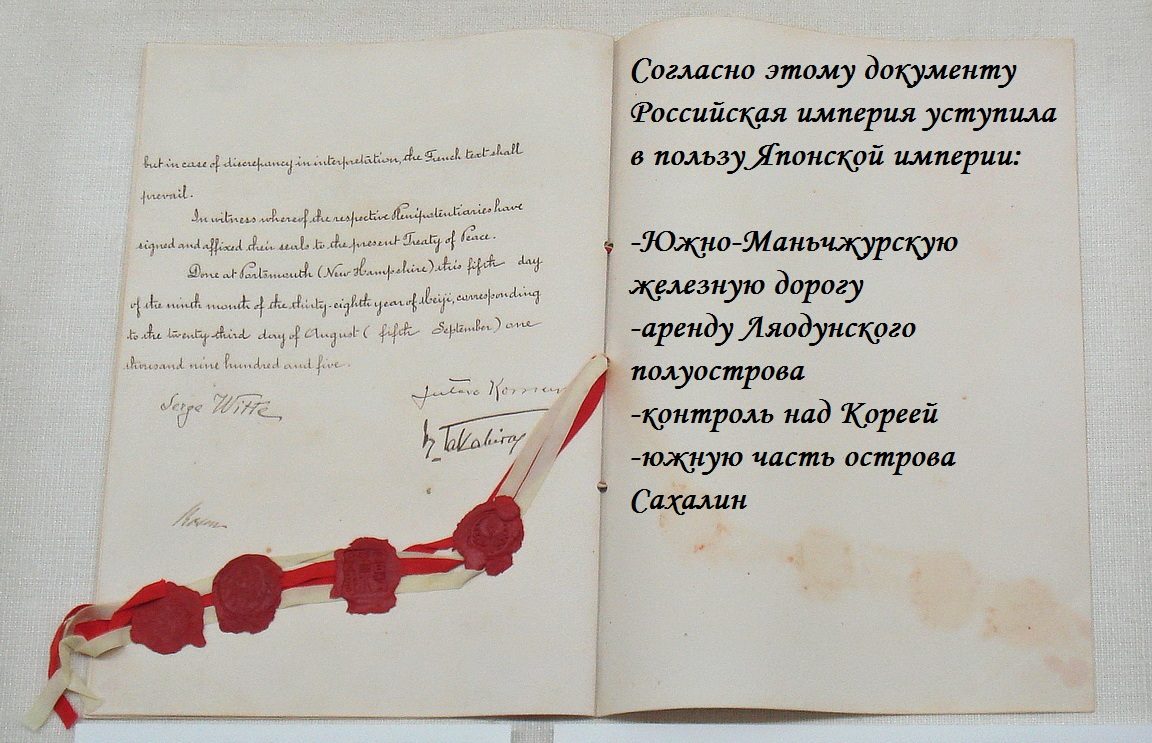 but in case of discrepancy in interpretation, the French text shall
prevail.
In witness whereof the respective Plenipotentiaries have
signed and affixed their seals to the present Treaty of Peace.
Done at Portsmouth (New Hampshire) this fifth day
of the ninth month of the thirty-eighth year of Meiji, corresponding
to the twenty third day of August ( fifth September) one
thousand nine hundred and five.
Serge Witte
Jutaro Komura
K. Takahira
Rosen
Согласно этому документу
Российская империя уступила
в пользу Японской империи:
-Южно-Маньчжурскую
железную дорогу
-аренду Ляодунского
полуострова
-контроль над Кореей
-южную часть острова
Сахалин